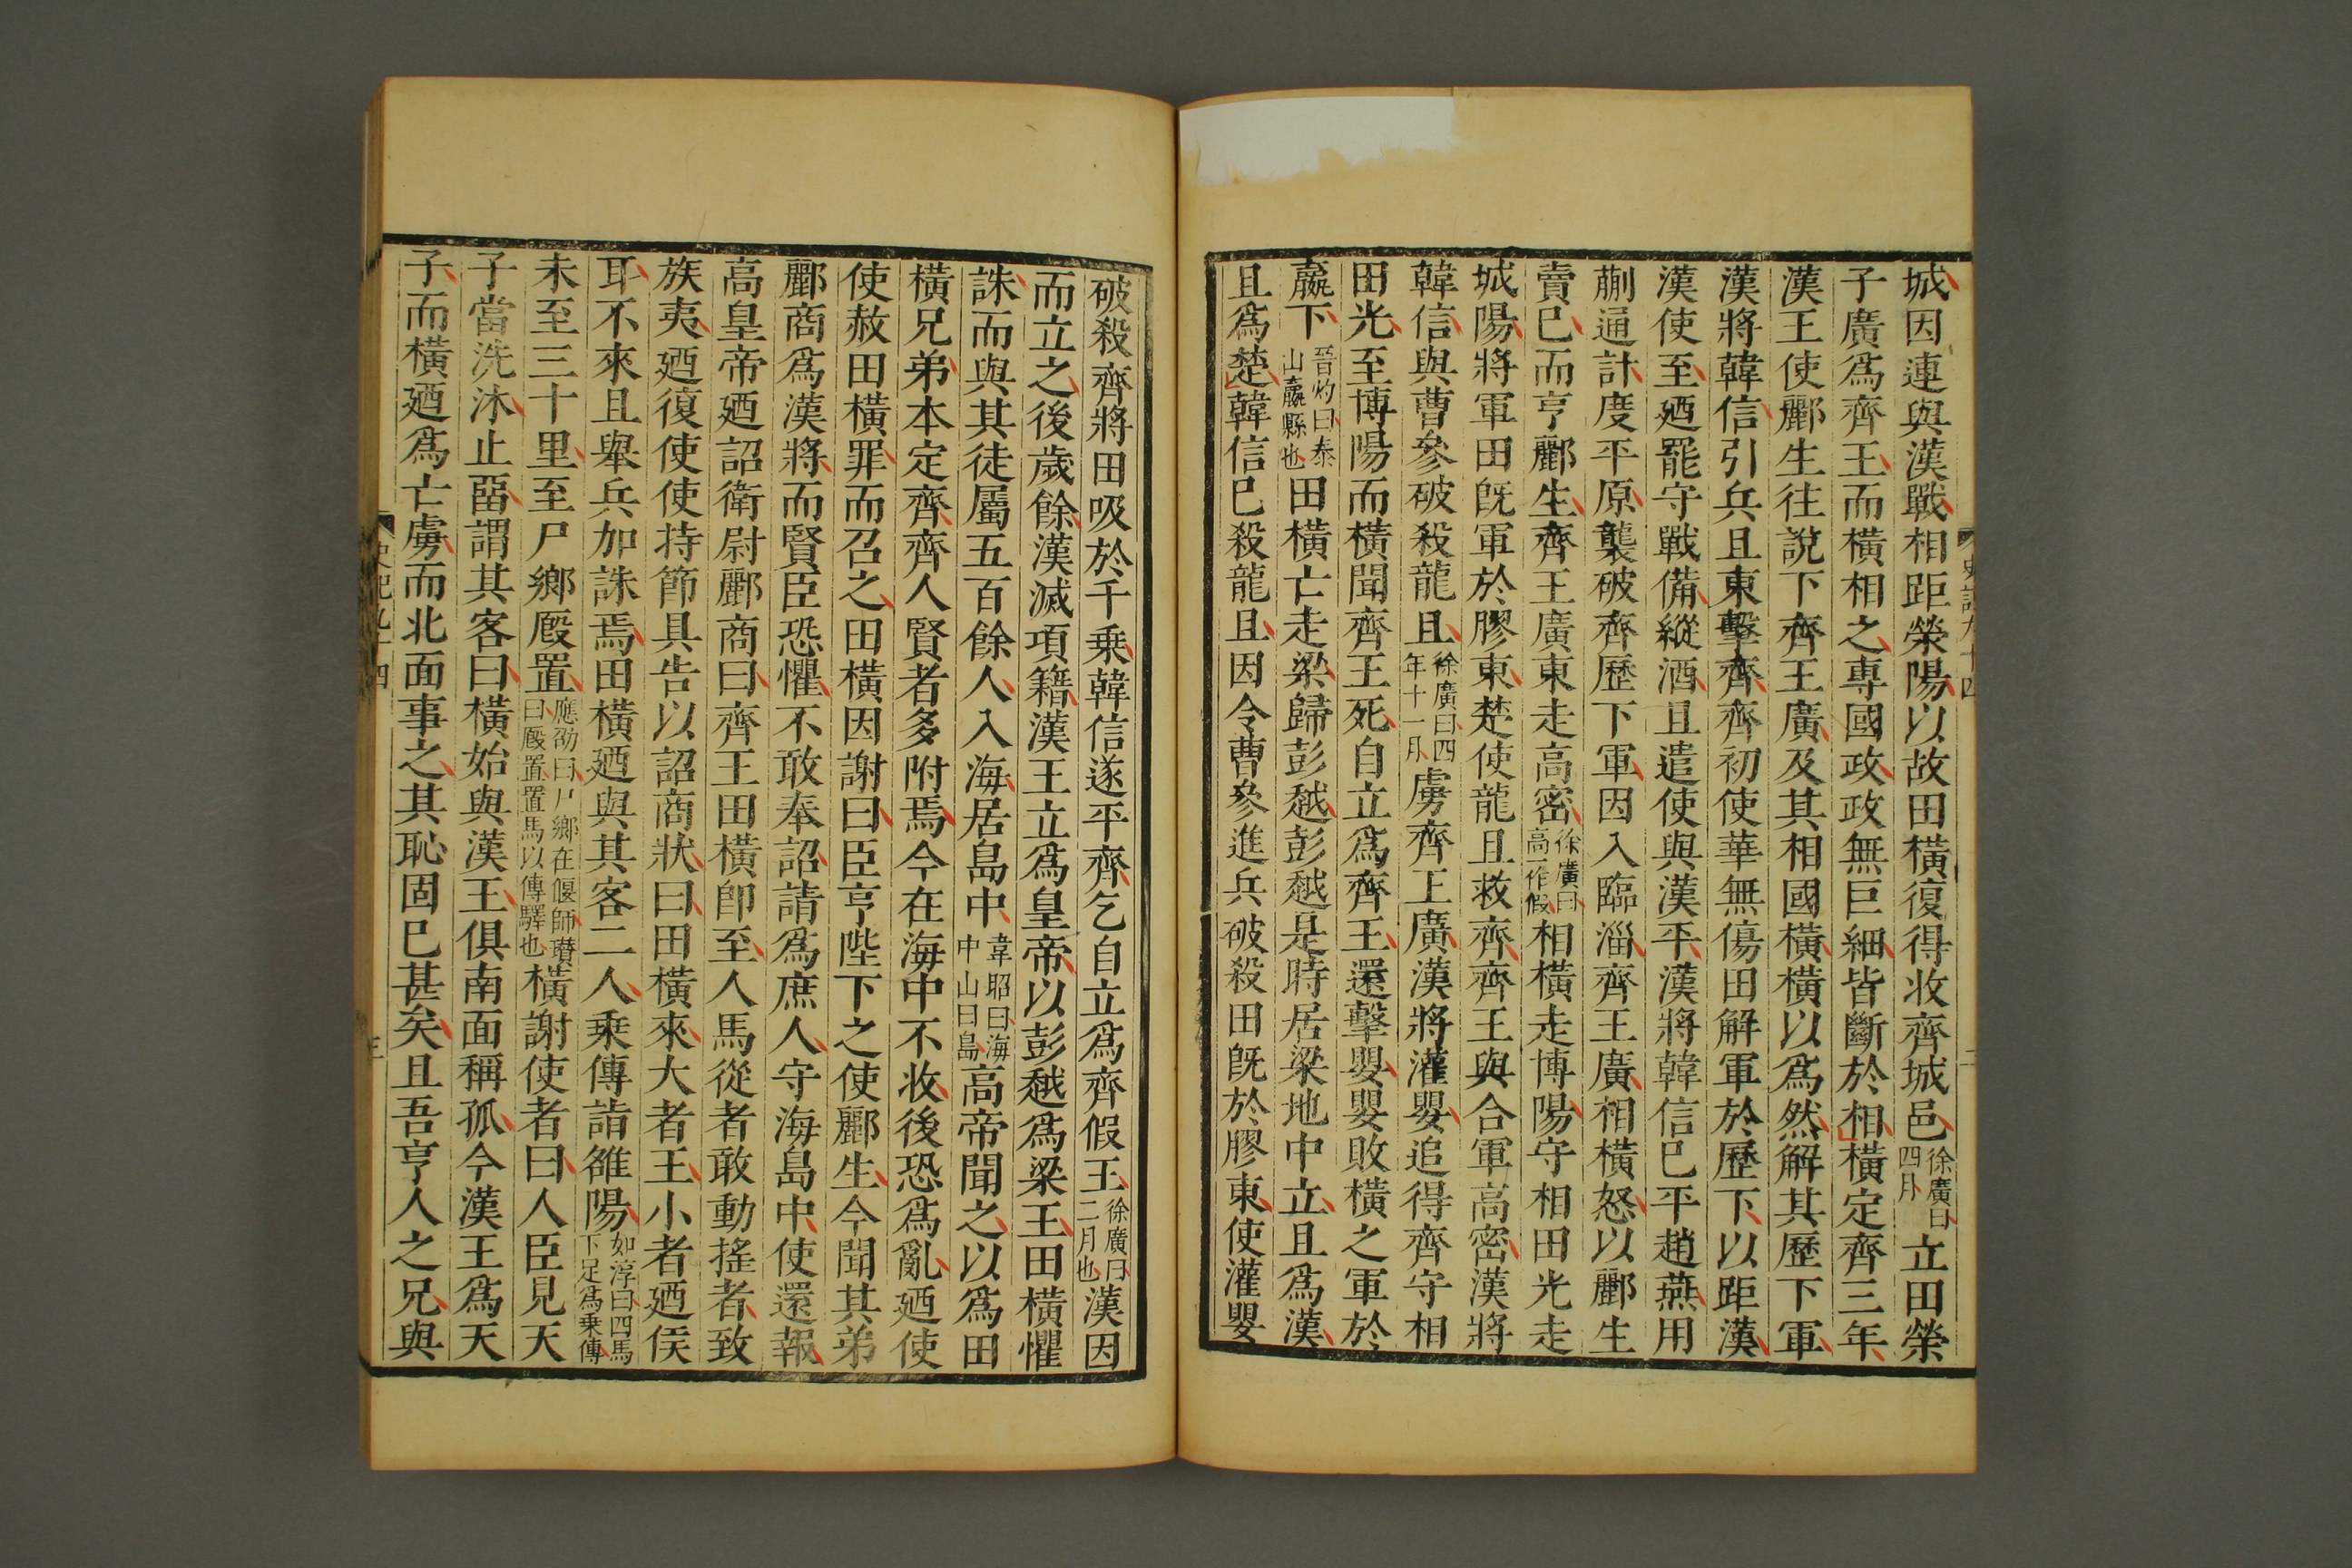 城因連與漢戰相距滎陽以故田橫復得收齊城邑徐廣曰四月立田榮
子廣爲齊王而橫相之專國政政無巨細皆斷於相橫定齊三年
漢王使酈生往說下齊王廣及其相國橫橫以爲然解其歷下軍
漢將韓信引兵且東擊齊齊初使華無傷田解軍於歷下以距漢
漢使至廼罷守戰備縱酒且遣使與漢平漢將韓信已平趙燕用
蒯通計度平原襲破齊歷下軍因入臨淄齊王廣相橫怒以酈生
賣已而亨酈生齊王廣東走高密徐廣曰高一作假相橫走博陽守相田光走
城陽將軍田旣軍於膠東楚使龍且救齊齊王與合軍高密漢將
韓信與曹參破殺龍且徐廣曰四年十一月虜齊王廣漢將灌嬰追得齊守相
田光至博陽而橫聞齊王死自立爲齊王還擊嬰嬰敗橫之軍於
嬴下晉灼曰泰山嬴縣也田橫亡走梁歸彭越彭越是時居梁地中立且爲漢
且爲楚韓信已殺龍且因令曹參進兵破殺田旣於膠東使灌嬰
破殺齊將田吸於千乘韓信遂平齊乞自立爲齊假王徐廣曰二月也漢因
而立之後歲餘漢滅項籍漢王立爲皇帝以彭越爲梁王田橫懼
誅而與其徒屬五百餘人入海居島中韋昭曰海中山曰島高帝聞之以爲田
橫兄弟本定齊齊人賢者多附焉今在海中不收後恐爲亂廼使
使赦田橫罪而召之田橫因謝曰臣亨陛下之使酈生今聞其弟
酈商爲漢將而賢臣恐懼不敢奉詔請爲庶人守海島中使還報
高皇帝廼詔衛尉酈商曰齊王田橫卽至人馬從者敢動搖者致
族夷廼復使使持節具告以詔商狀曰田橫來大者王小者廼侯
耳不來且舉兵加誅焉田橫廼與其客二人乘傳詣雒陽如淳曰四馬下足爲乘傳
未至三十里至尸鄉廄置應劭曰尸鄉在偃師瓚曰廄置置馬以傳驛也橫謝使者曰人臣見天
子當洗沐止畱謂其客曰橫始與漢王俱南面稱孤今漢王爲天
子而橫廼爲亡虜而北面事之其恥固已甚矣且吾亨人之兄與
史記九十四
三